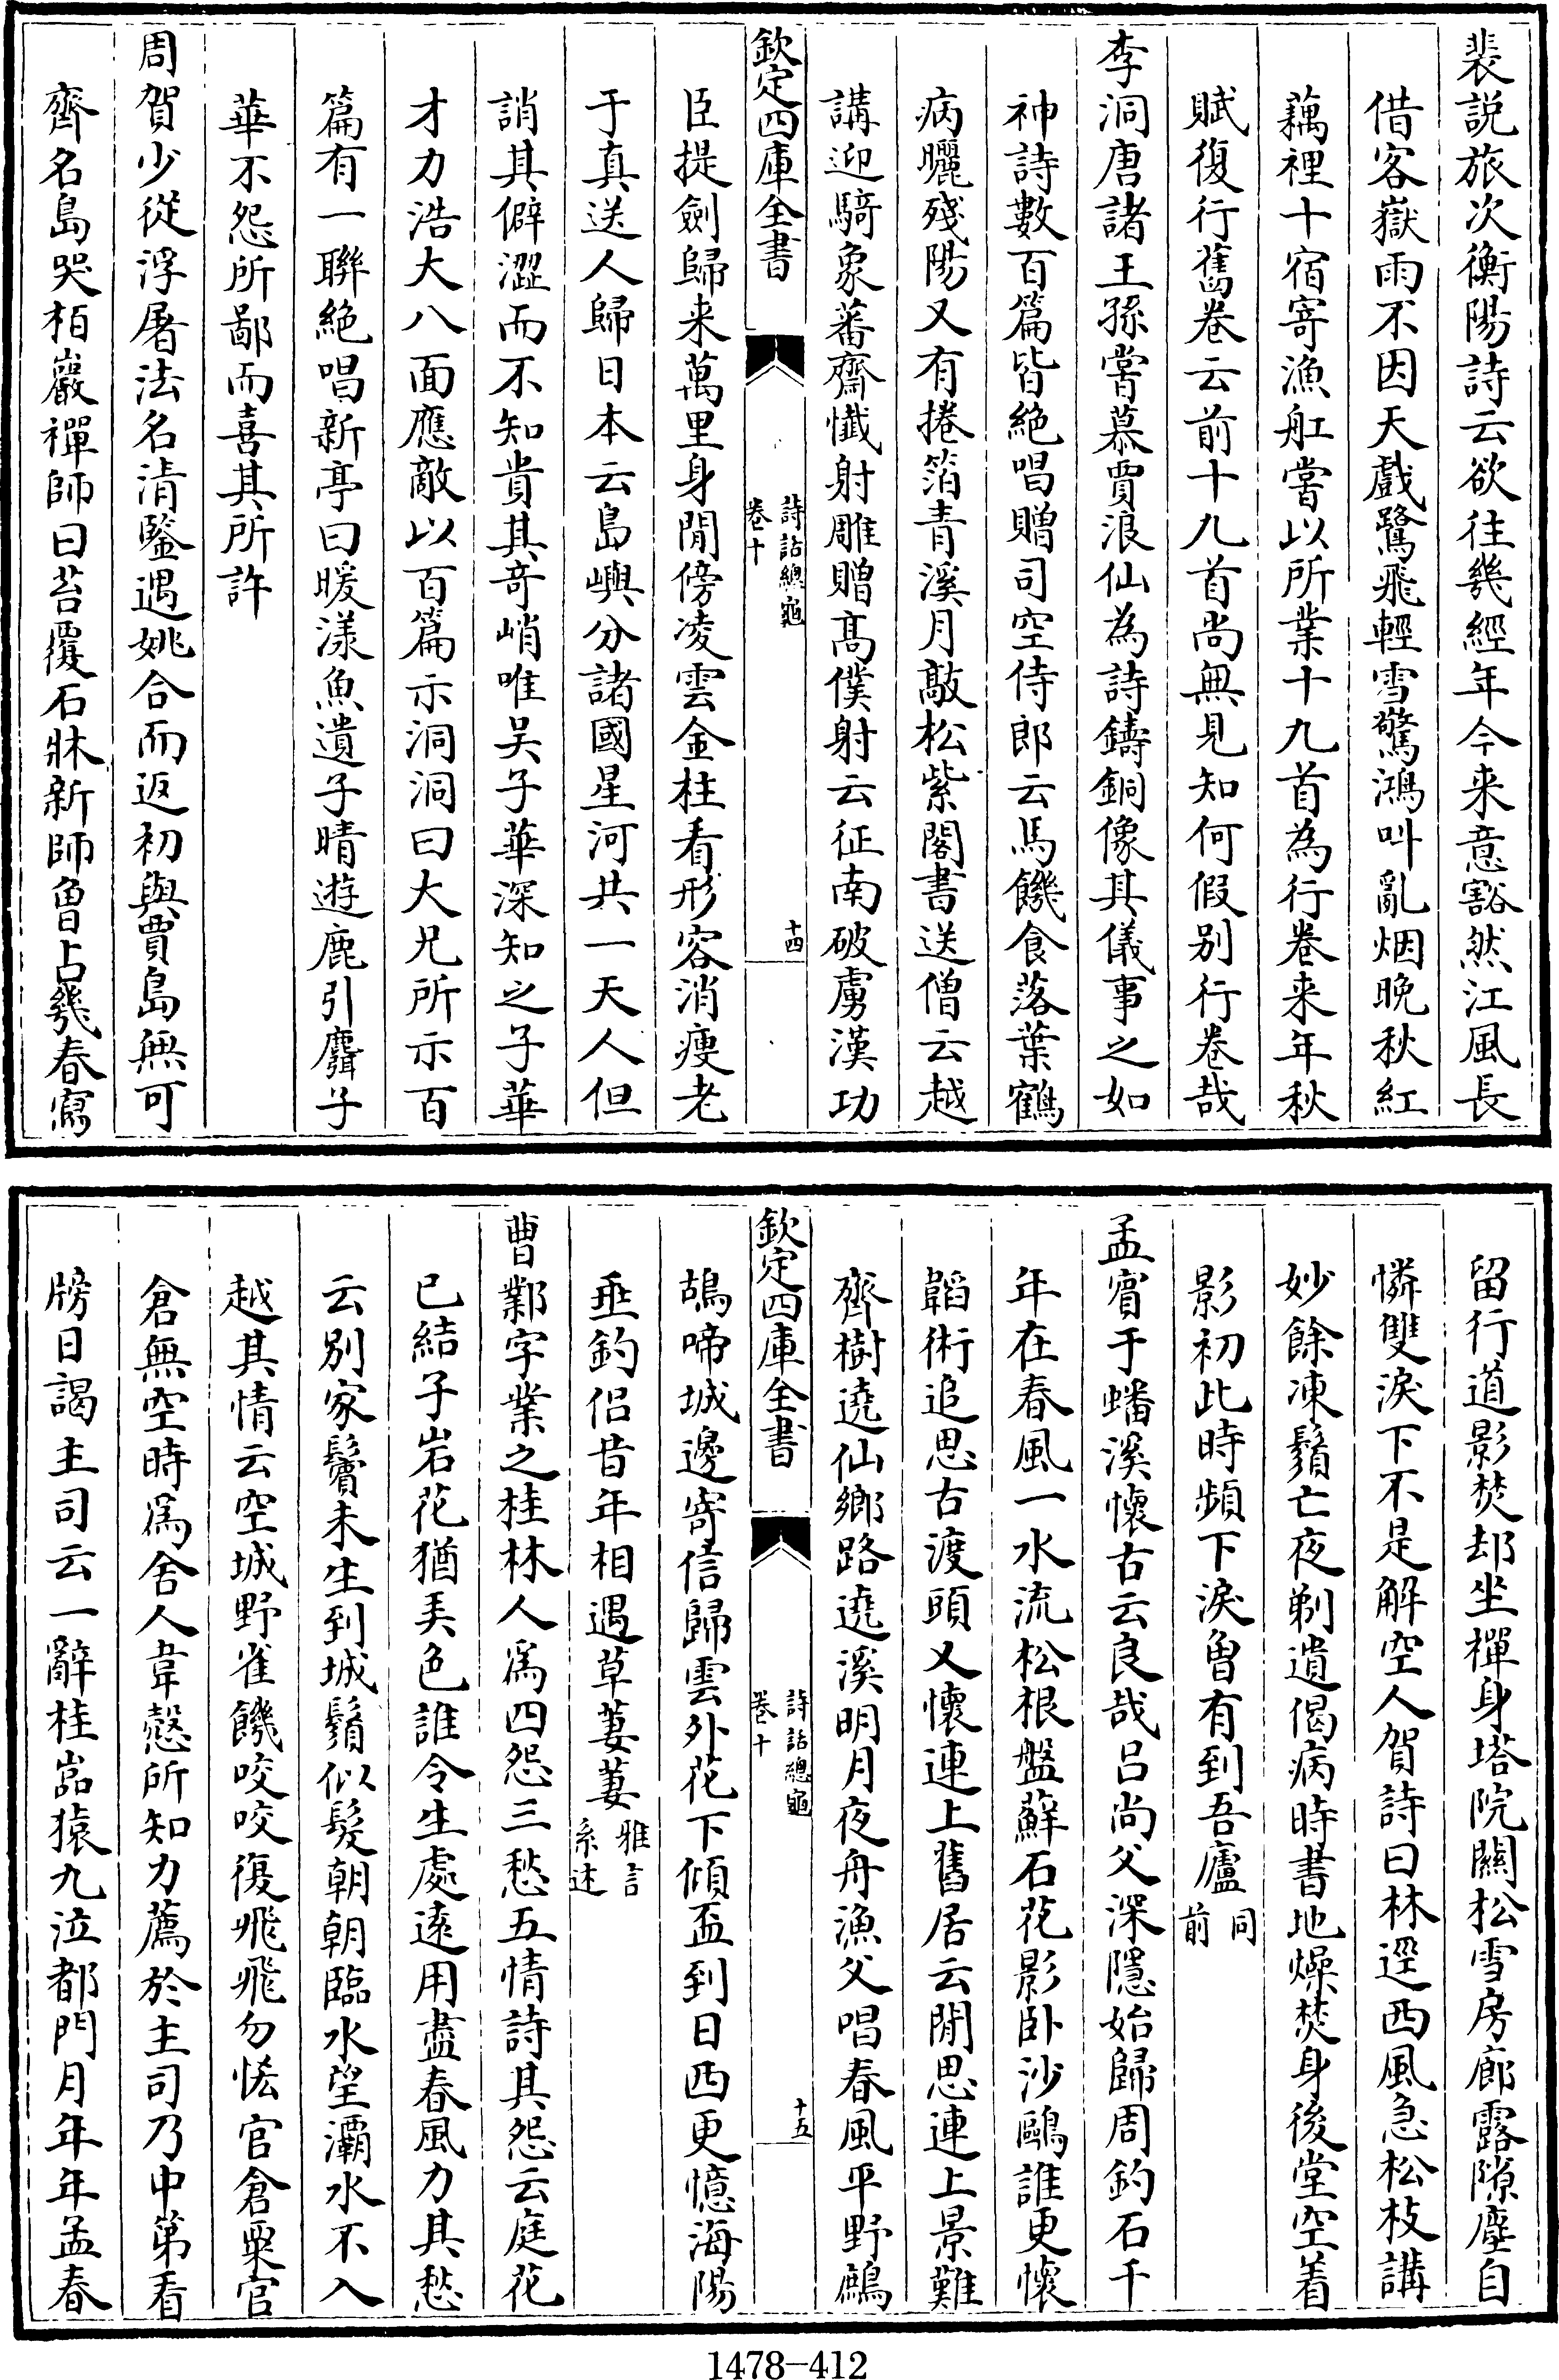 裴説旅次衡陽詩云欲往幾經年今来意豁然江風長
借客嶽雨不因天戲鷺飛輕雪驚鴻叫亂烟晚秋紅
藕裡十宿寄漁舡嘗以所業十九首為行卷来年秋
賦復行舊卷云前十九首尚無見知何假别行卷哉
李洞唐諸王孫嘗慕賈浪仙為詩鑄銅像其儀事之如
神詩數百篇皆絶唱贈司空侍郎云馬饑食落葉鶴
病曬殘陽又有捲箔青溪月敲松紫閣書送僧云越
講迎騎象蕃齋懺射雕贈髙僕射云征南破虜漢功
欽定四庫全書
詩話總龜
卷十
十四
臣提劍歸来萬里身閒傍凌雲金柱看形容消瘦老
于真送人歸日本云島嶼分諸國星河共一天人但
誚其僻澀而不知貴其奇峭唯吴子華深知之子華
才力浩大八面應敵以百篇示洞洞曰大兄所示百
篇有一聯絶唱新亭曰暖漾魚遺子晴遊鹿引麛子
華不怨所鄙而喜其所許
周賀少從浮屠法名清鑒遇姚合而返初與賈島無可
齊名島哭栢巖禪師曰苔覆石牀新師曾占幾春寫
留行道影焚却坐禪身塔院關松雪房廊露隙塵自
憐雙淚下不是解空人賀詩曰林逕西風急松枝講
妙餘凍鬚亡夜剃遺偈病時書地燥焚身後堂空着
影初此時頻下淚曽有到吾廬
同
前
孟賓于蟠溪懷古云良哉吕尚父深隱始歸周釣石千
年在春風一水流松根盤蘚石花影卧沙鷗誰更懷
韜術追思古渡頭又懷連上舊居云閒思連上景難
齊樹遶仙鄉路遶溪明月夜舟漁父唱春風平野鷓
欽定四庫全書
詩話總龜
卷十
十五
鴣啼城邊寄信歸雲外花下傾盃到日西更憶海陽
垂釣侣昔年相遇草萋萋
雅言
系述
曹鄴字業之桂林人為四怨三愁五情詩其怨云庭花
已結子岩花猶弄色誰令生處逺用盡春風力其愁
云别家鬢未生到城鬚似髮朝朝臨水望灞水不入
越其情云空城野雀饑咬咬復飛飛勿恠官倉粟官
倉無空時為舍人韋慤所知力薦於主司乃中第看
牓日謁主司云一辭桂嵓猿九泣都門月年年孟春
1478-412